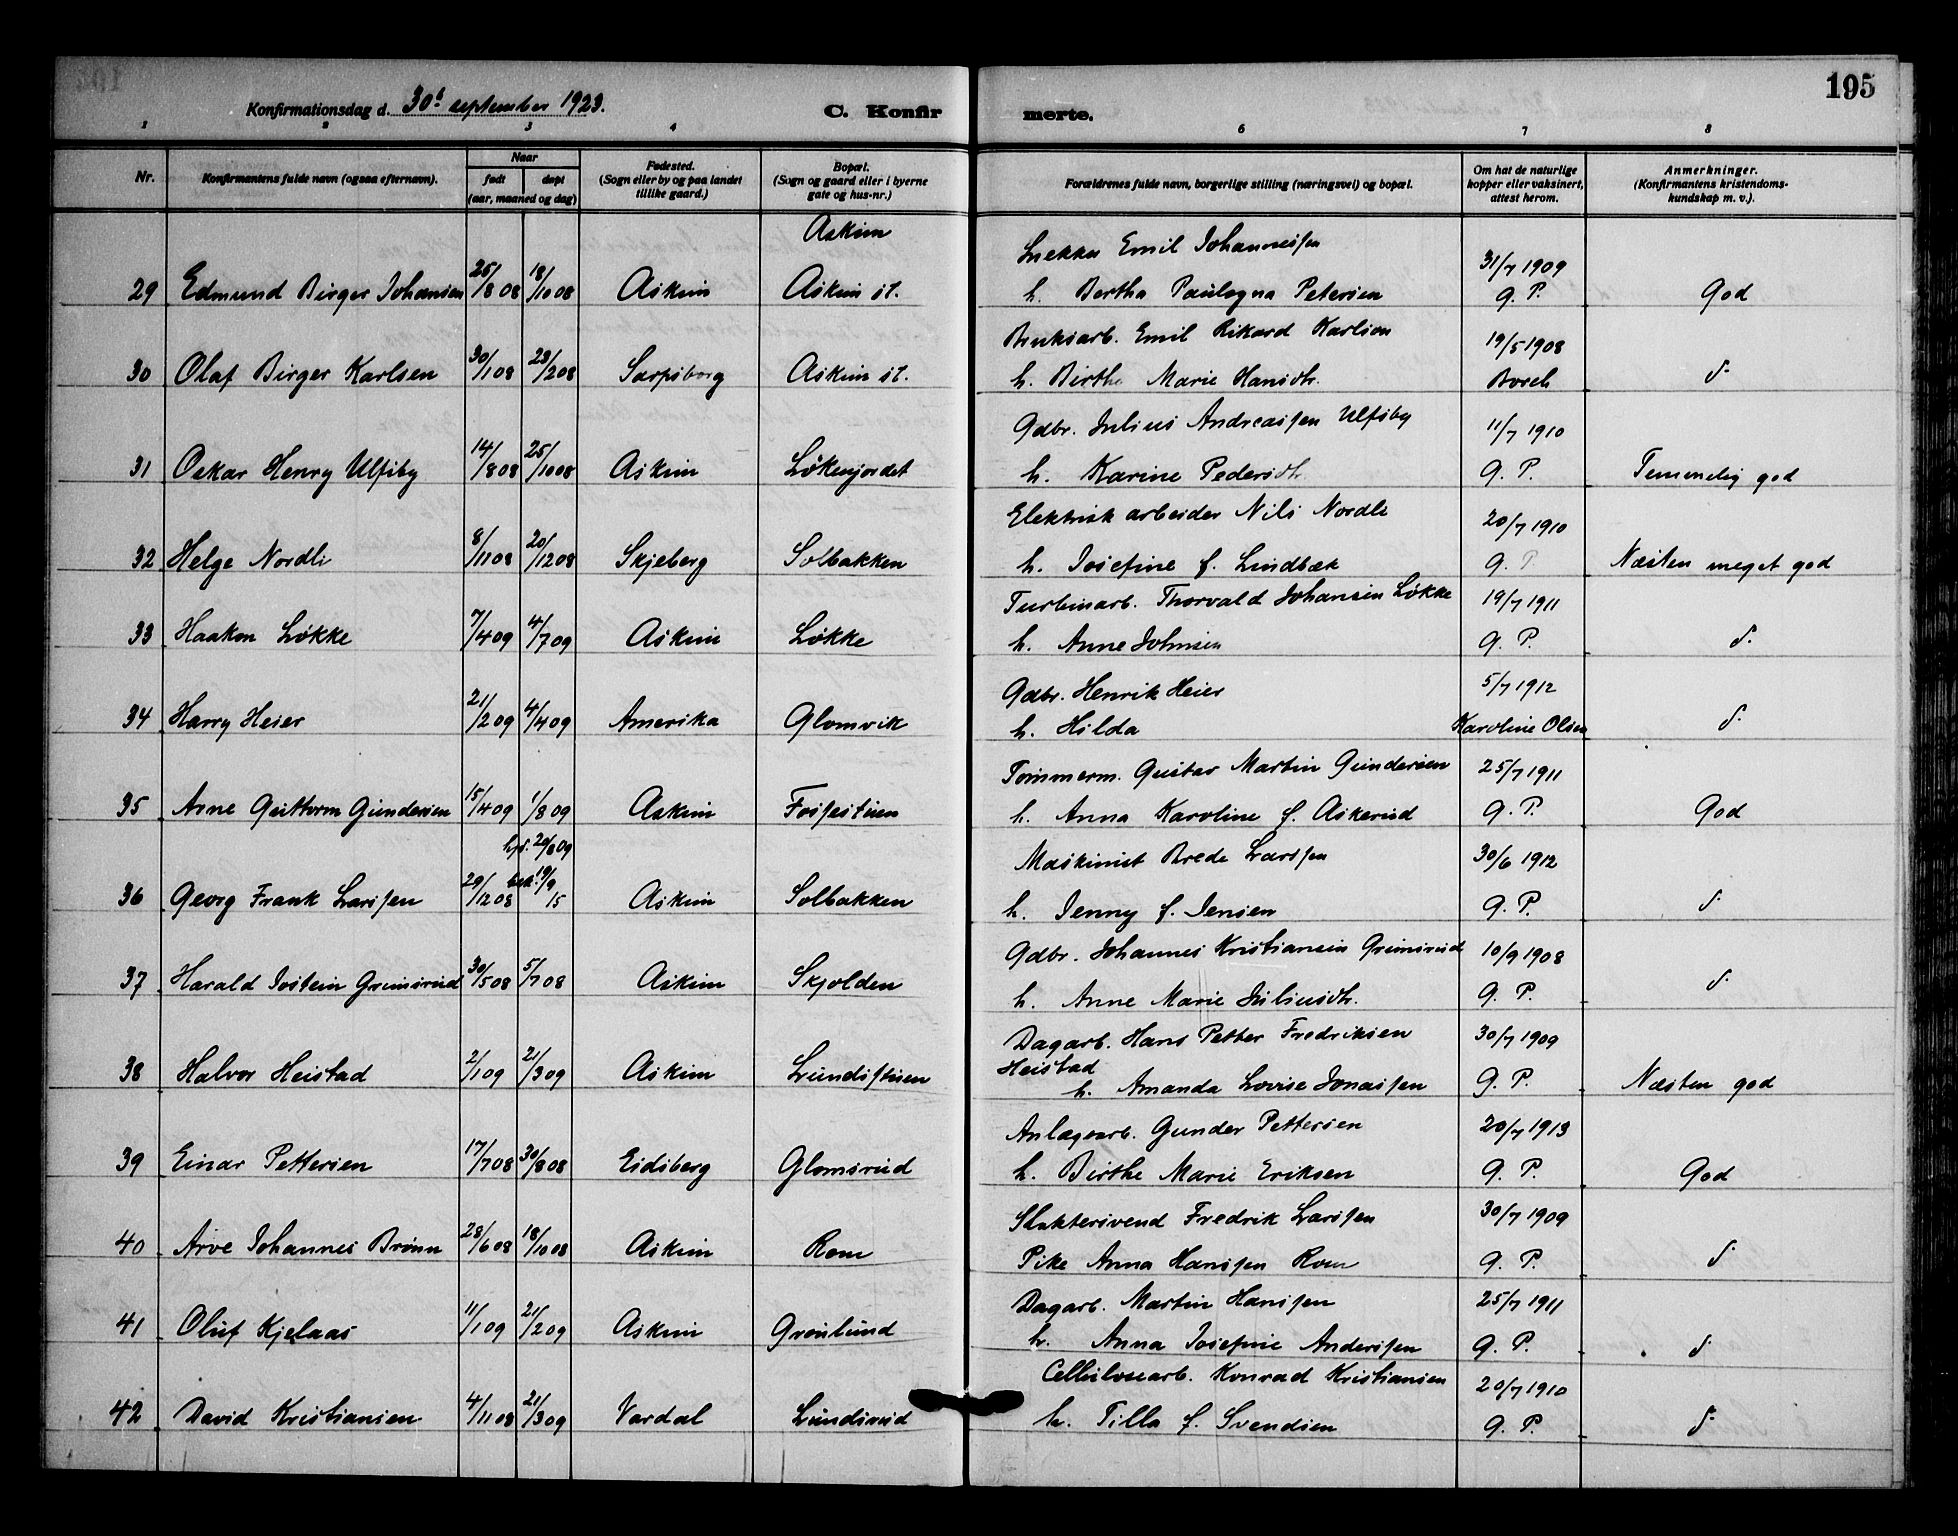 195
Konfirmationsdag d. 30t september 1923. C. Konfir merte.
1 2 3 4 6 7 8
Nr. Konfirmantens fulde navn (ogsaa efternavn). Naar født døpt (aar, maaned og dag) Fødested. (Sogn eller by og paa landet tillike gaard.) Bopæl. (Sogn og gaard eller i byerne gate og hus-nr.) Forældrenes fulde navn, borgerlige stilling (næringsvei) og bopæl. Om hat de naturlige kopper eller vaksinert, attest herom. Anmerkninger. (Konfirmantens kristendoms-kundskap m. v.).
Askim Snekker Emil Johannessen 31/7 1909
29 Edmund Birger Johansen 25/8 08 18/10 08 Askim Askim st. h. Bertha Paulagna Petersen G. P. God
Bruksarb. Emil Rikard Karlson 19/5 1908
30 Olaf Birger Karlsen 30/1 08 23/2 08 Sarpsborg Askim st. h. Birthe Marie Hansdtr. Borch d.
Gdbr. Julius Andreassen Ulfsby 11/7 1910
31 Oskar Henry Ulfsby 14/8 08 25/10 08 Askim Løkenjordet h. Karine Pedersdtr. G. P. Temmelig god
Elektrisk arbeider Nils Nordli 20/7 1910
32 Helge Nordli 8/11 08 20/12 08 Skjeberg Solbakken h. Josefine f. Lindbæk G. P. Næsten meget god
Turbinarb. Thorvald Johansen Løkke 19/7 1911
33 Haakon Løkke 7/4 09 4/7 09 Askim Løkke h. Anne Johnsen G. P. d.
Gdbr. Henrik Heier 5/7 1912
34 Harry Heier 21/2 09 4/4 09 Amerika Glomvik h. Hilda Karoline Olsen d.
Tømmerm. Gustav Martin Gundersen 25/7 1911
35 Arne Guttorm Gundersen 15/4 09 1/8 09 Askim Fossestuen h. Anna Karoline f. Askerud G. P. God
hjd. 20/8 09 Maskinist Brede Larssen 30/6 1912
36 Georg Frank Larssen 29/12 08 bek. 19/9 15 Askim Solbakken h. Jenny f. Jensen G. P. d.
Gdbr. Johannes Kristiansen Grimsrud 10/9 1908
37 Harald Jostein Grimsrud 30/5 08 5/7 08 Askim Skjolden h. Anne Marie Juliusdtr. G. P. d.
Dagarb. Hans Petter Fredriksen 30/7 1909
Heistad
38 Halvor Heistad 2/1 09 21/3 09 Askim Lundsstuen h. Amanda Lovise Jonassen G. P. Næsten god
Anlægsarb. Gunder Pettersen 20/7 1913
39 Einar Pettersen 17/7 08 30/8 08 Eidsberg Glomsrud h. Birthe Marie Eriksen G. P. God
Slaktersvend Fredrik Larssen 30/7 1909
40 Arve Johannes Brønn 28/6 08 18/10 08 Askim Rom Pike Anna Hanssen Rom G. P. d.
Dagarb. Martin Hanssen 25/7 1911
41 Oluf Kjelaas 11/1 09 21/2 09 Askim Grønlund h. Anna Josefine Anderssen G. P. d.
Cellulosearb. Konrad Kristiansen 20/7 1910
42 David Kristiansen 4/11 08 21/3 09 Vardal Lundsrud h. Tilla f. Svendsen G. P. d.